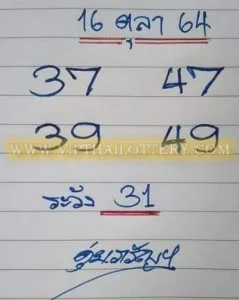 16 ตลา 64
37 47
39 49
WWW.VIPTHAILOTTERY.COM
ระวัง 31